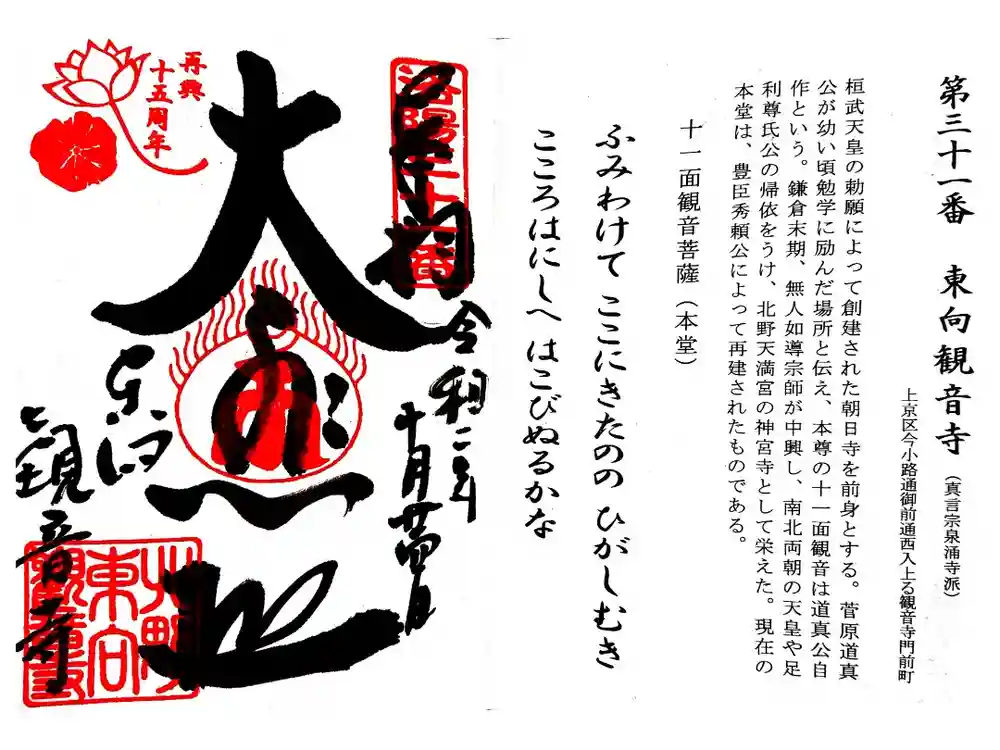 第三十一番 東向観音寺（真言宗泉涌寺派）
上京区今小路通御前通西入上る観音寺門前町
桓武天皇の勅願によって創建された朝日寺を前身とする。菅原道真
公が幼い頃勉学に励んだ場所と伝え、本尊の十一面観音は道真公自
作という。鎌倉末期、無人如導宗師が中興し、南北両朝の天皇や足
利尊氏公の帰依をうけ、北野天満宮の神宮寺として栄えた。現在の
本堂は、豊臣秀頼公によって再建されたものである。
十一面観音菩薩（本堂）
ふみわけて ここにきたのの ひがしむき
こころはにしへ はこびぬるかな
洛陽三十一番
令和二年
十月廿四日
大悲
再興
十五周年
東向
観音寺
北野
東向
観音寺